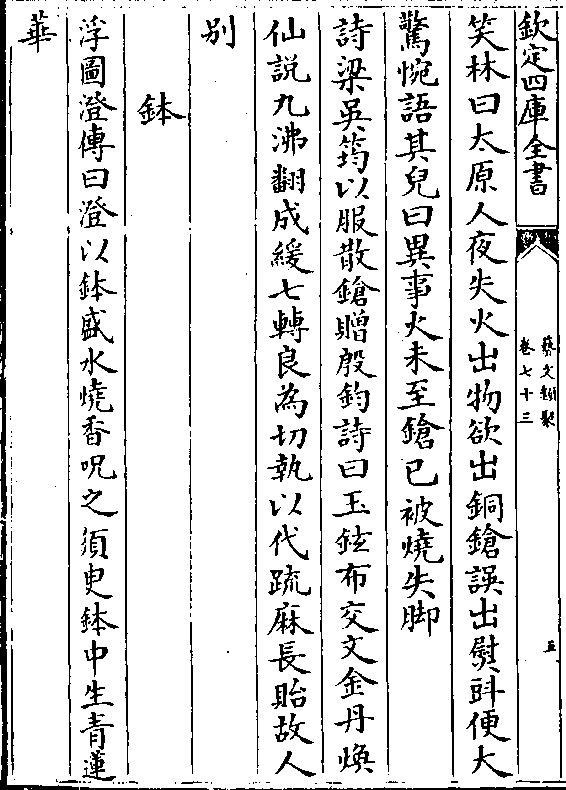 欽定四庫全書
藝文類聚
卷七十三
五
笑林曰太原人夜失火出物欲出銅鎗誤出熨㪷便大
驚惋語其兒曰異事火未至鎗已被燒失脚
詩梁吳筠以服散鎗贈殷鈞詩曰玉鉉布交文金丹煥
仙説九沸翻成緩七轉良為切執以代疏麻長貽故人
别
鉢
浮圖澄傳曰澄以鉢盛水燒香呪之須臾鉢中生青蓮
華